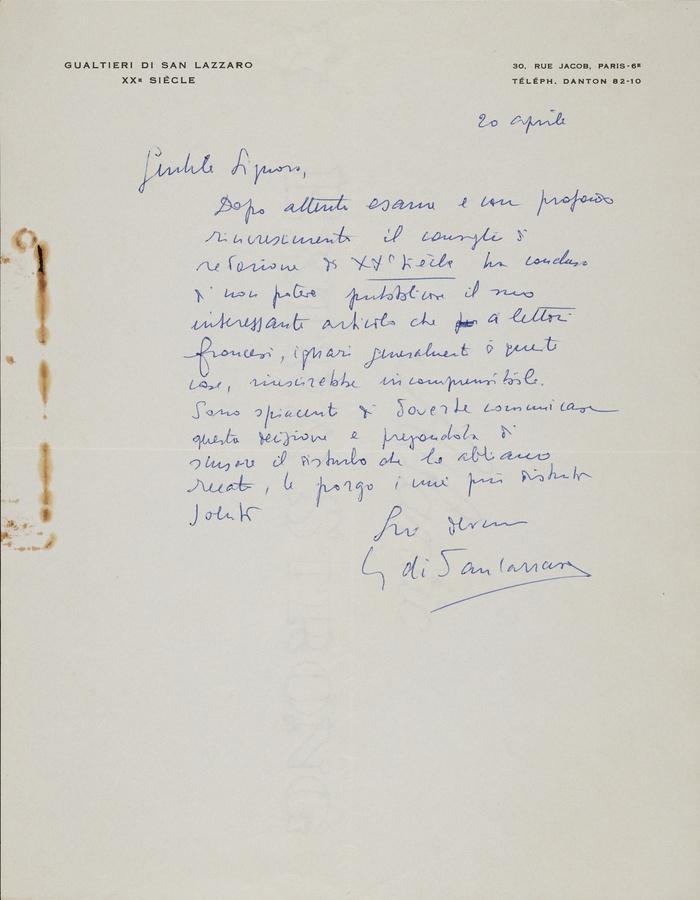 GUALTIERI DI SAN LAZZARO
XXe SIÈCLE
30, RUE JACOB, PARIS-6E
TÉLÉPH. DANTON 82-10
20 aprile
Gentile Signora,
Dopo attento esame e con profondo
rincrescimento il consiglio di
redazione di XXe Siècle ha concluso
di non potere pubblicare il suo
interessante articolo che a lettori
francesi, ignari generalmente di queste
cose, riuscirebbe incomprensibile.
Sono spiacente di doverle comunicare
questa decisione e pregandola di
scusare il disturbo che le abbiamo
recato, le porgo i miei più distinti
saluti
Suo devmo
G di San Lazzaro